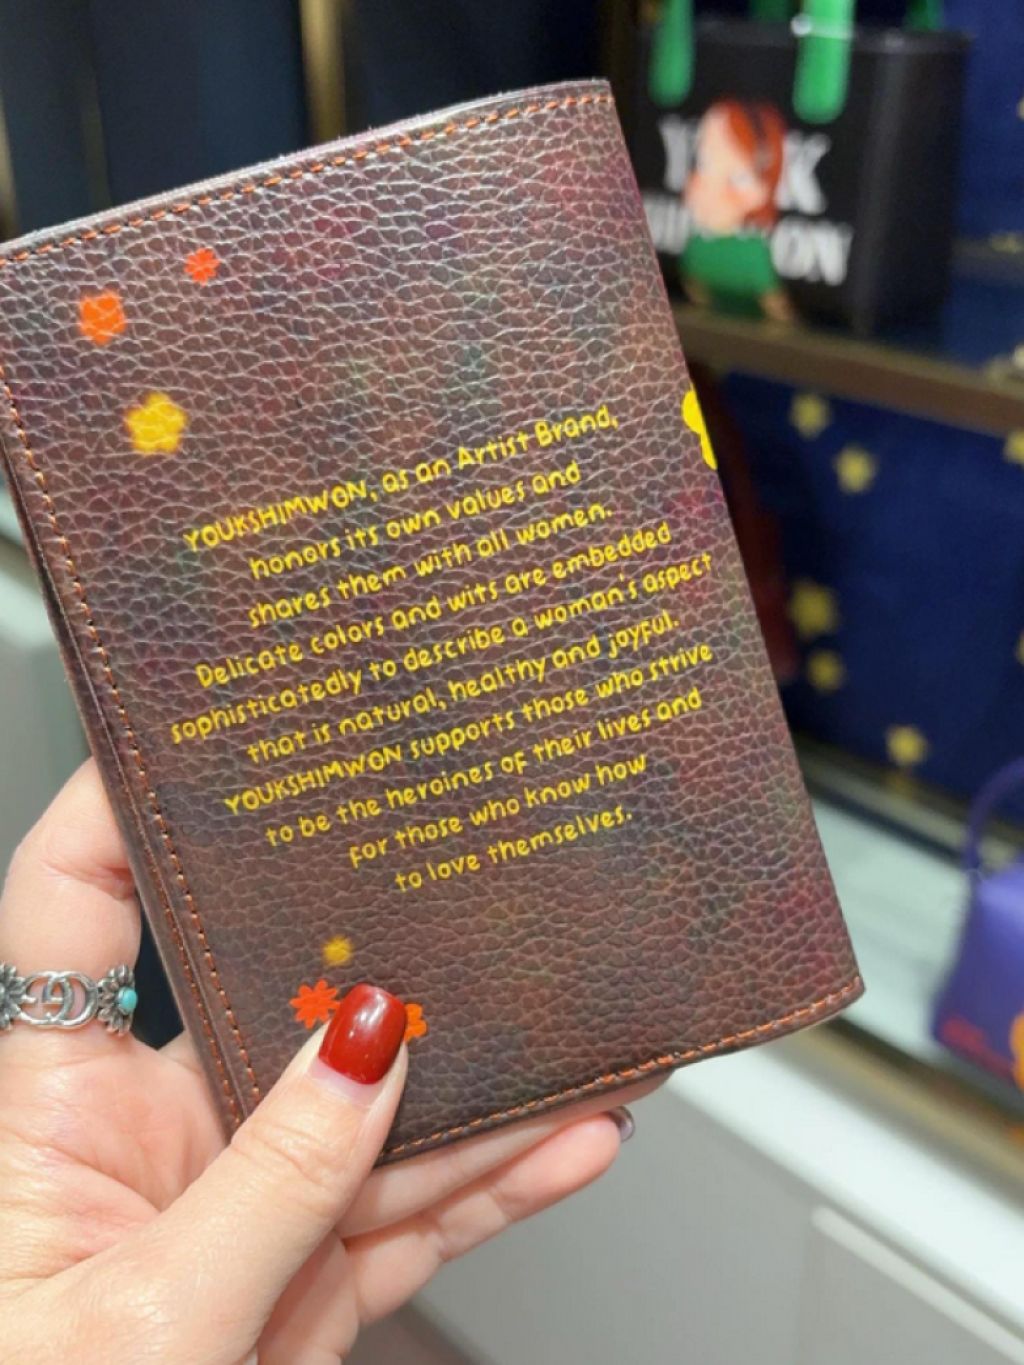 YOUKSHIMWON, as an Artist Brand,
honors its own values and
shares them with all women.
Delicate colors and wits are embedded
sophisticatedly to describe a woman's aspect
that is natural, healthy and joyful.
YOUKSHIMWON supports those who strive
to be the heroines of their lives and
for those who know how
to love themselves.